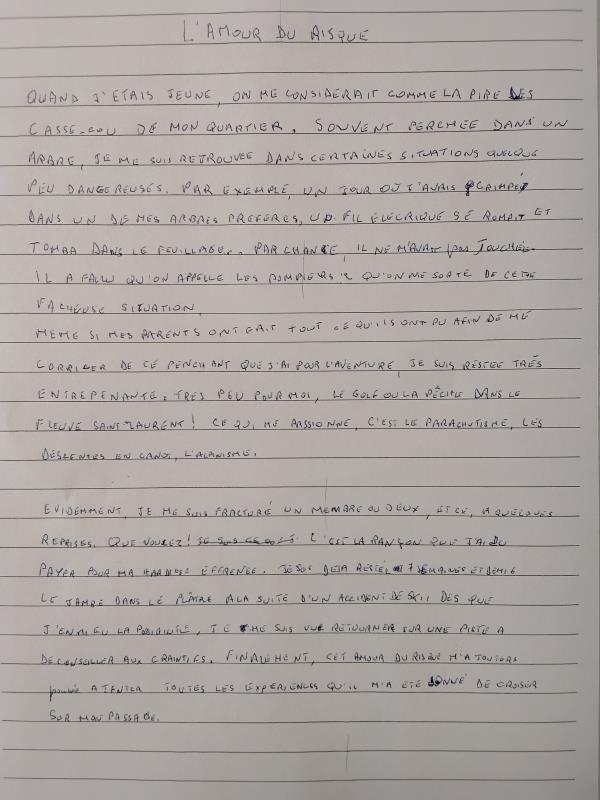 L'AMOUR DU RISQUE
QUAND J'ETAIS JEUNE, ON ME CONSIDERAIT COMME LA PIRE DES
CASSE-COU DE MON QUARTIER. SOUVENT PERCHEE DANS UN
ARBRE, JE ME SUIS RETROUVEE DANS CERTAINES SITUATIONS QUELQUE
PEU DANGEREUSES. PAR EXEMPLE, UN JOUR OÙ J'AVAIS GRIMPÉ
DANS UN DE MES ARBRES PREFERES, UN FIL ELECRIQUE SE ROMPIT ET
TOMBA DANS LE FEUILLAGE. PAR CHANCE, IL NE M'AVAIT pas TOUCHÉE.
IL A FALLU QU'ON APPELLE LES POMPIERS QU'ON ME SORTE DE CETTE
FACHEUSE SITUATION.
MEME SI MES PARENTS ONT FAIT TOUT CE QU'ILS ONT PU AFIN DE ME
CORRIGER DE CE PENCHANT QUE J'AI POUR L'AVENTURE, JE SUIS RESTEE TRÈS
ENTREPENANTE. TRES PEU POUR MOI, LE GOLF OU LA PÊCHE DANS LE
FLEUVE SAINT-LAURENT! CE QUI ME PASSIONNE, C'EST LE PARACHUTISME, LES
DESCENTES EN CANOT, L'ALANISME.
EVIDEMMENT, JE ME SUIS FRACTURÉ UN MEMBRE OU DEUX, ET CE, A QUELQUES
REPRISES. QUE VOULEZ! C'EST LA RANÇON QUE J'AI DU
PAYER POUR MA EFFRENEE. JE SUIS DEJA RESTÉE 7 SEMAINES ET DEMIE
LE JAMBE DANS LE PLÂTRE A LA SUITE D'UN ACCIDENT DE SKII DES QUE
J'EN AI EU LA POSIBILITE, JE ME SUIS VUE RETOURNER SUR UNE PISTE A
DECONSEILLER AUX CRAINTIFS. FINALEMENT, CET AMOUR DU RISQUE M'A TOUJORS
A TENTER TOUTES LES EXPERIENCES QU'IL M'A ETE DONNÉ DE CROISER
SUR MON PASSAGE.